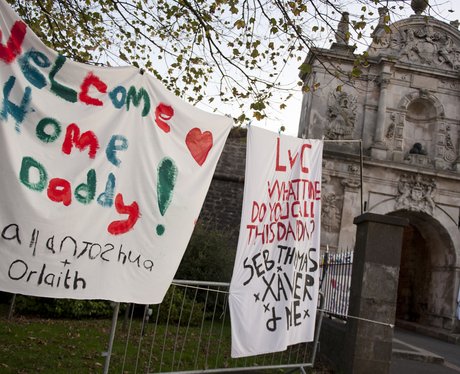 Welcome
Home
Daddy!
allanJoshua
+
Orlaith
LvC
WHAT TIME
DO YOU CALL
THIS DADDA?
SEB THOMAS
x XAVER x
x & ME x